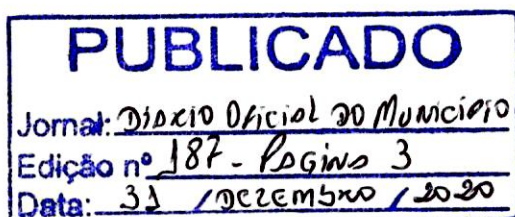 PUBLICADO
Jornal: Diário Oficial do Município
Edição nº 187 - Página 3
Data: 31 / Dezembro / 2020